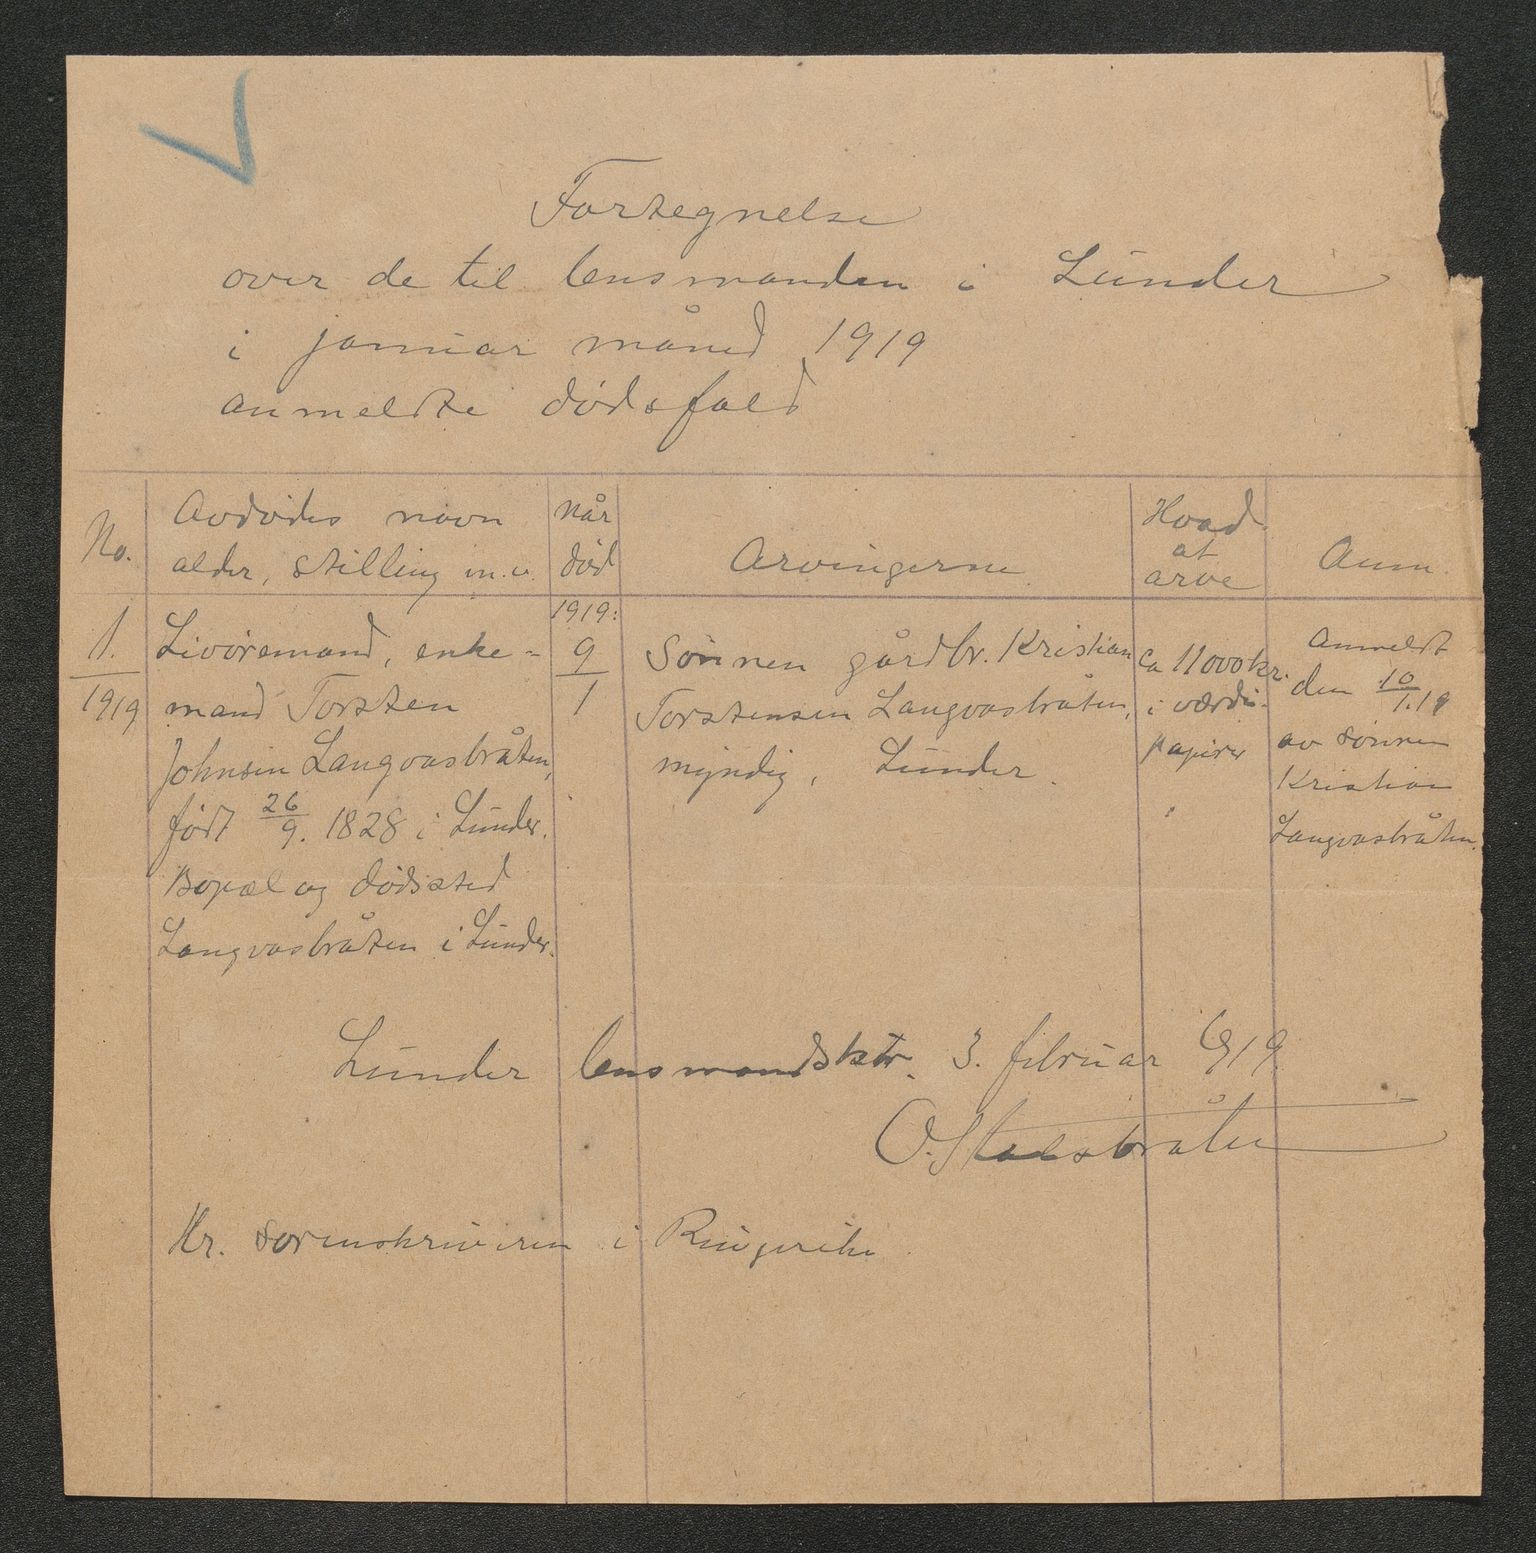 Fortegnelse
over de til lensmanden i Lunder
i januar måned 1919
anmeldte dødsfald
No.
Avdødes navn
alder, stilling m.v.
Når
død
Arvingerne
Hvad
at
arve
Anm.
1.
1919
Livøremand, enke-
mand Torsten
Johnsen Langvasbråten,
født 26/9. 1828 i Lunder.
Bopæl og dødssted
Langvasbråten i Lunder.
1919:
9
1
Sønnen gårdbr. Kristian
Torstensen Langvasbråten,
myndig, Lunder.
Ca 11000 kr.
i værdi-
papirer
Anmeldt
den 10/1.19
av sønnen
Kristian
Langvasbråten.
Lunder lensmandsktr. 3. februar 1919.
O. Stalsbråten
Hr. sorenskriveren i Ringerike